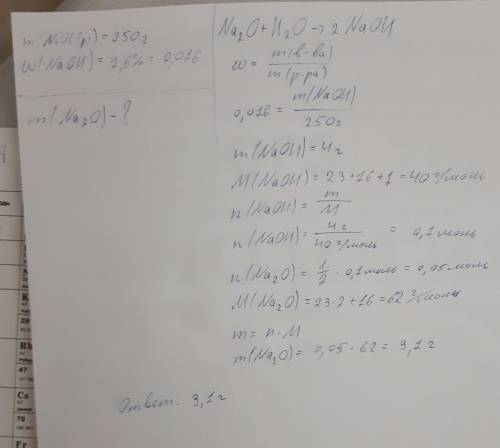 m(NaOH(p)) = 250г
ω(NaOH) = 1,6% = 0,016
m(Na₂O) - ?
Na₂O + H₂O → 2 NaOH
ω = m(в-ва) / m(р-ра)
0,016 = m(NaOH) / 250г
m(NaOH) = 4г
M(NaOH) = 23+16+1 = 40 г/моль
n(NaOH) = m / M
n(NaOH) = 4г / 40 г/моль = 0,1 моль
n(Na₂O) = 1/2 · 0,1моль = 0,05 моль
M(Na₂O) = 23·2+16 = 62 г/моль
m = n · M
m(Na₂O) = 0,05 · 62 = 3,1 г
Ответ. 3,1 г
K
Rb
47
Cs
79
Fr